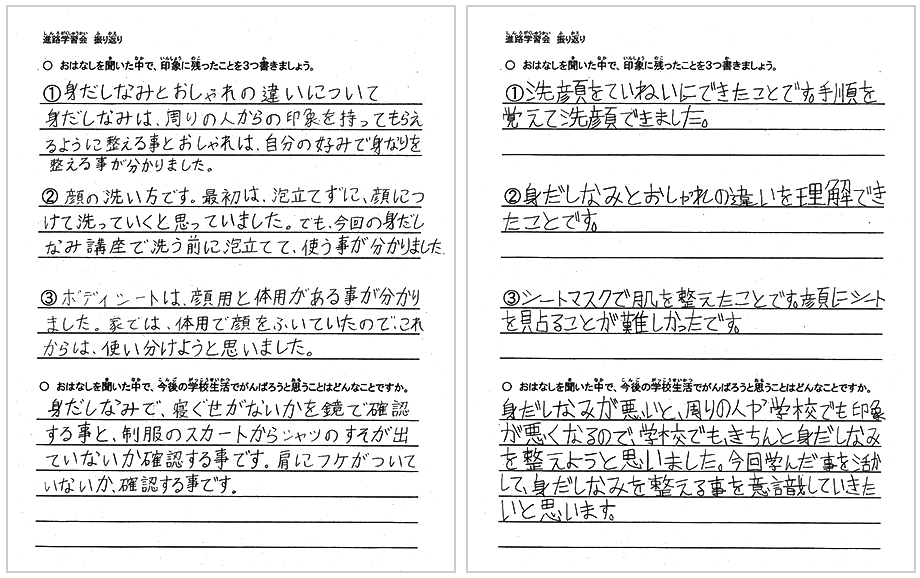 進路学習会 振り返り
○ おはなしを聞いた中で、印象に残ったことを3つ書きましょう。
①身だしなみとおしゃれの違いについて
身だしなみは、周りの人からの印象を持ってもらえ
るように整える事とおしゃれは、自分の好みで身なりを
整える事が分かりました。
②顔の洗い方です。最初は、泡立てずに、顔につ
けて洗っていくと思っていました。でも、今回の身だし
なみ講座で洗う前に泡立てて、使う事が分かりました。
③ボディシートは、顔用と体用がある事が分かり
ました。家では、体用で顔をふいていたので、これ
からは、使い分けようと思いました。
○ おはなしを聞いた中で、今後の学校生活でがんばろうと思うことはどんなことですか。
身だしなみで、寝ぐせがないかを鏡で確認
する事と、制服のスカートからシャツのすそが出
ていないか確認する事です。肩にフケがついて
いないか、確認する事です。
進路学習会 振り返り
○ おはなしを聞いた中で、印象に残ったことを3つ書きましょう。
①洗顔をていねいにできたことです。手順を
覚えて洗顔できました。
②身だしなみとおしゃれの違いを理解でき
たことです。
③シートマスクで肌を整えたことです。顔にシート
を見占ることが難しかったです。
○ おはなしを聞いた中で、今後の学校生活でがんばろうと思うことはどんなことですか。
身だしなみが悪いと、周りの人や学校でも印象
が悪くなるので、学校でも、きちんと身だしなみ
を整えようと思いました。今回学んだ事を活か
して、身だしなみを整える事を意識していきた
いと思います。